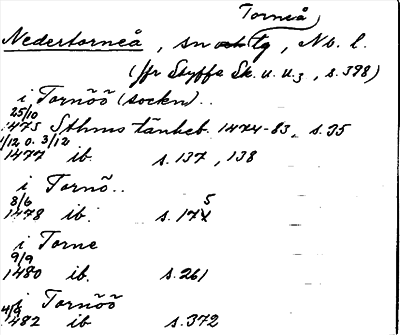 Torneå
Nedertorneå, sn och tg, Nb. l.
(jfr Styffe Sk. u. u.3, s. 398)
i Tornöö (socken)..
25/10
1475 Sthms tänkeb. 1474-83, s. 35
1/12 o. 3/12
1477 ib. s. 137, 138
i Tornö..
8/6
1478 ib. s. 175
i Torne
9/9
1480 ib. s. 261
i Tornöö
4/9
1482 ib s. 372